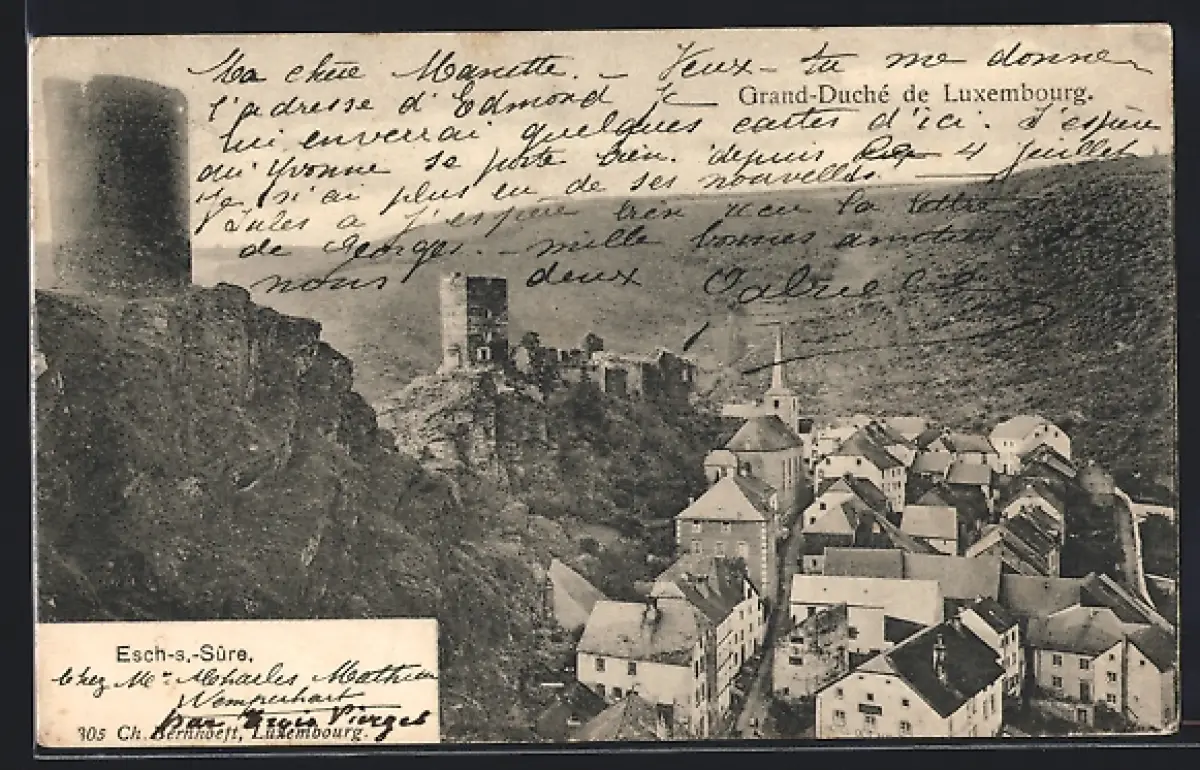 Ma chère Manette. – Veux-tu me donner
l'adresse d'Edmond Je
Grand-Duché de Luxembourg.
lui enverrai quelques cartes d'ici. J'espère
qu'Yvonne se porte bien. depuis 4 juillet
je n'ai plus eu de ses nouvelles. —
Jules a j'espère bien reçu la lettre
de Georges. – mille bonnes amitiés
nous deux
Esch-s.-Sûre.
Chez Mr Charles Mathieu
Wemperhart
par Trois Vierges
305 Ch. Bernhoeft, Luxembourg.